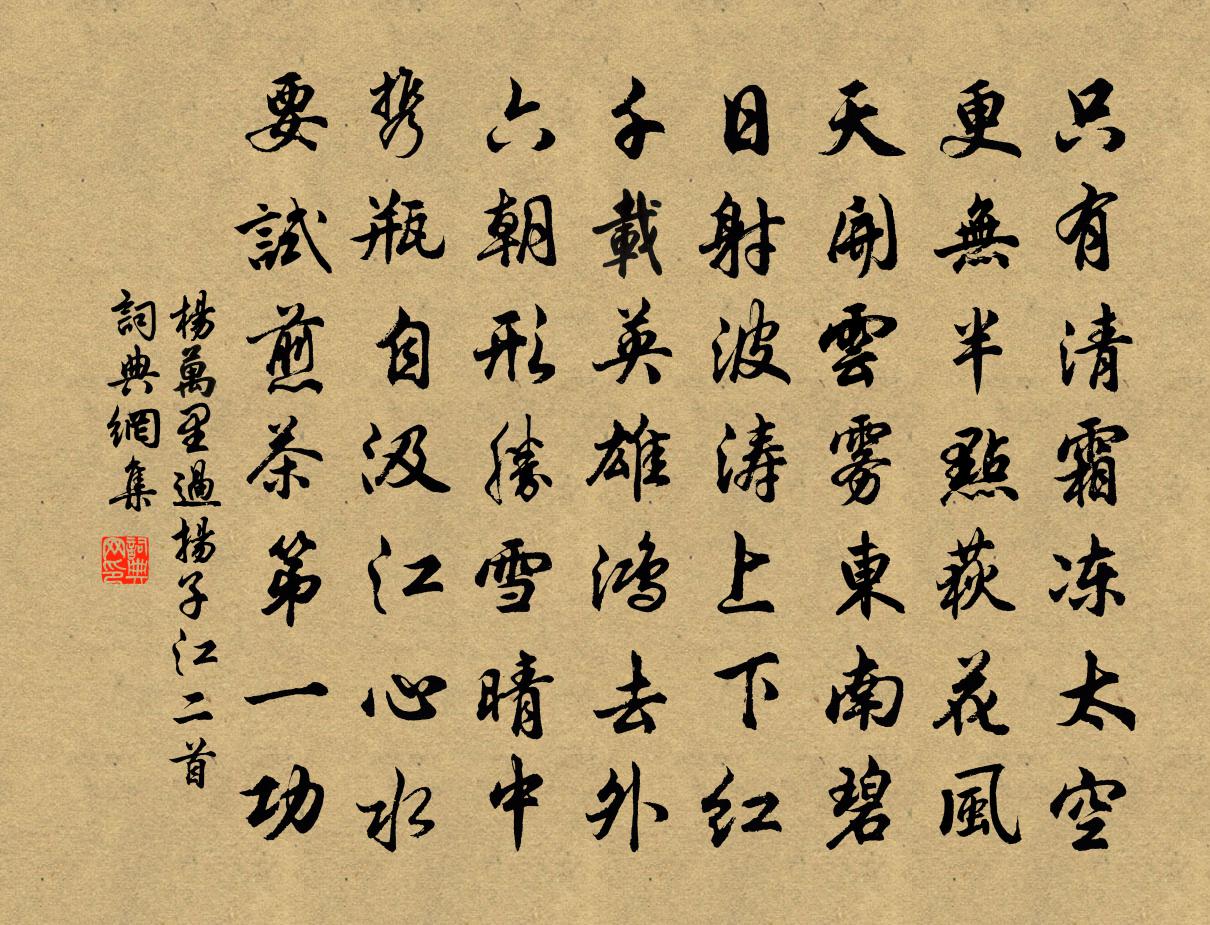 只有清霜冻太空
更無半點荻花風
天開雲霧東南碧
日射波涛上下红
千載英雄鸿去外
六朝形勝雪晴中
携瓶自汲江心水
要試煎茶第一功
楊萬里過揚子江二首
詞典網集
詞典网印